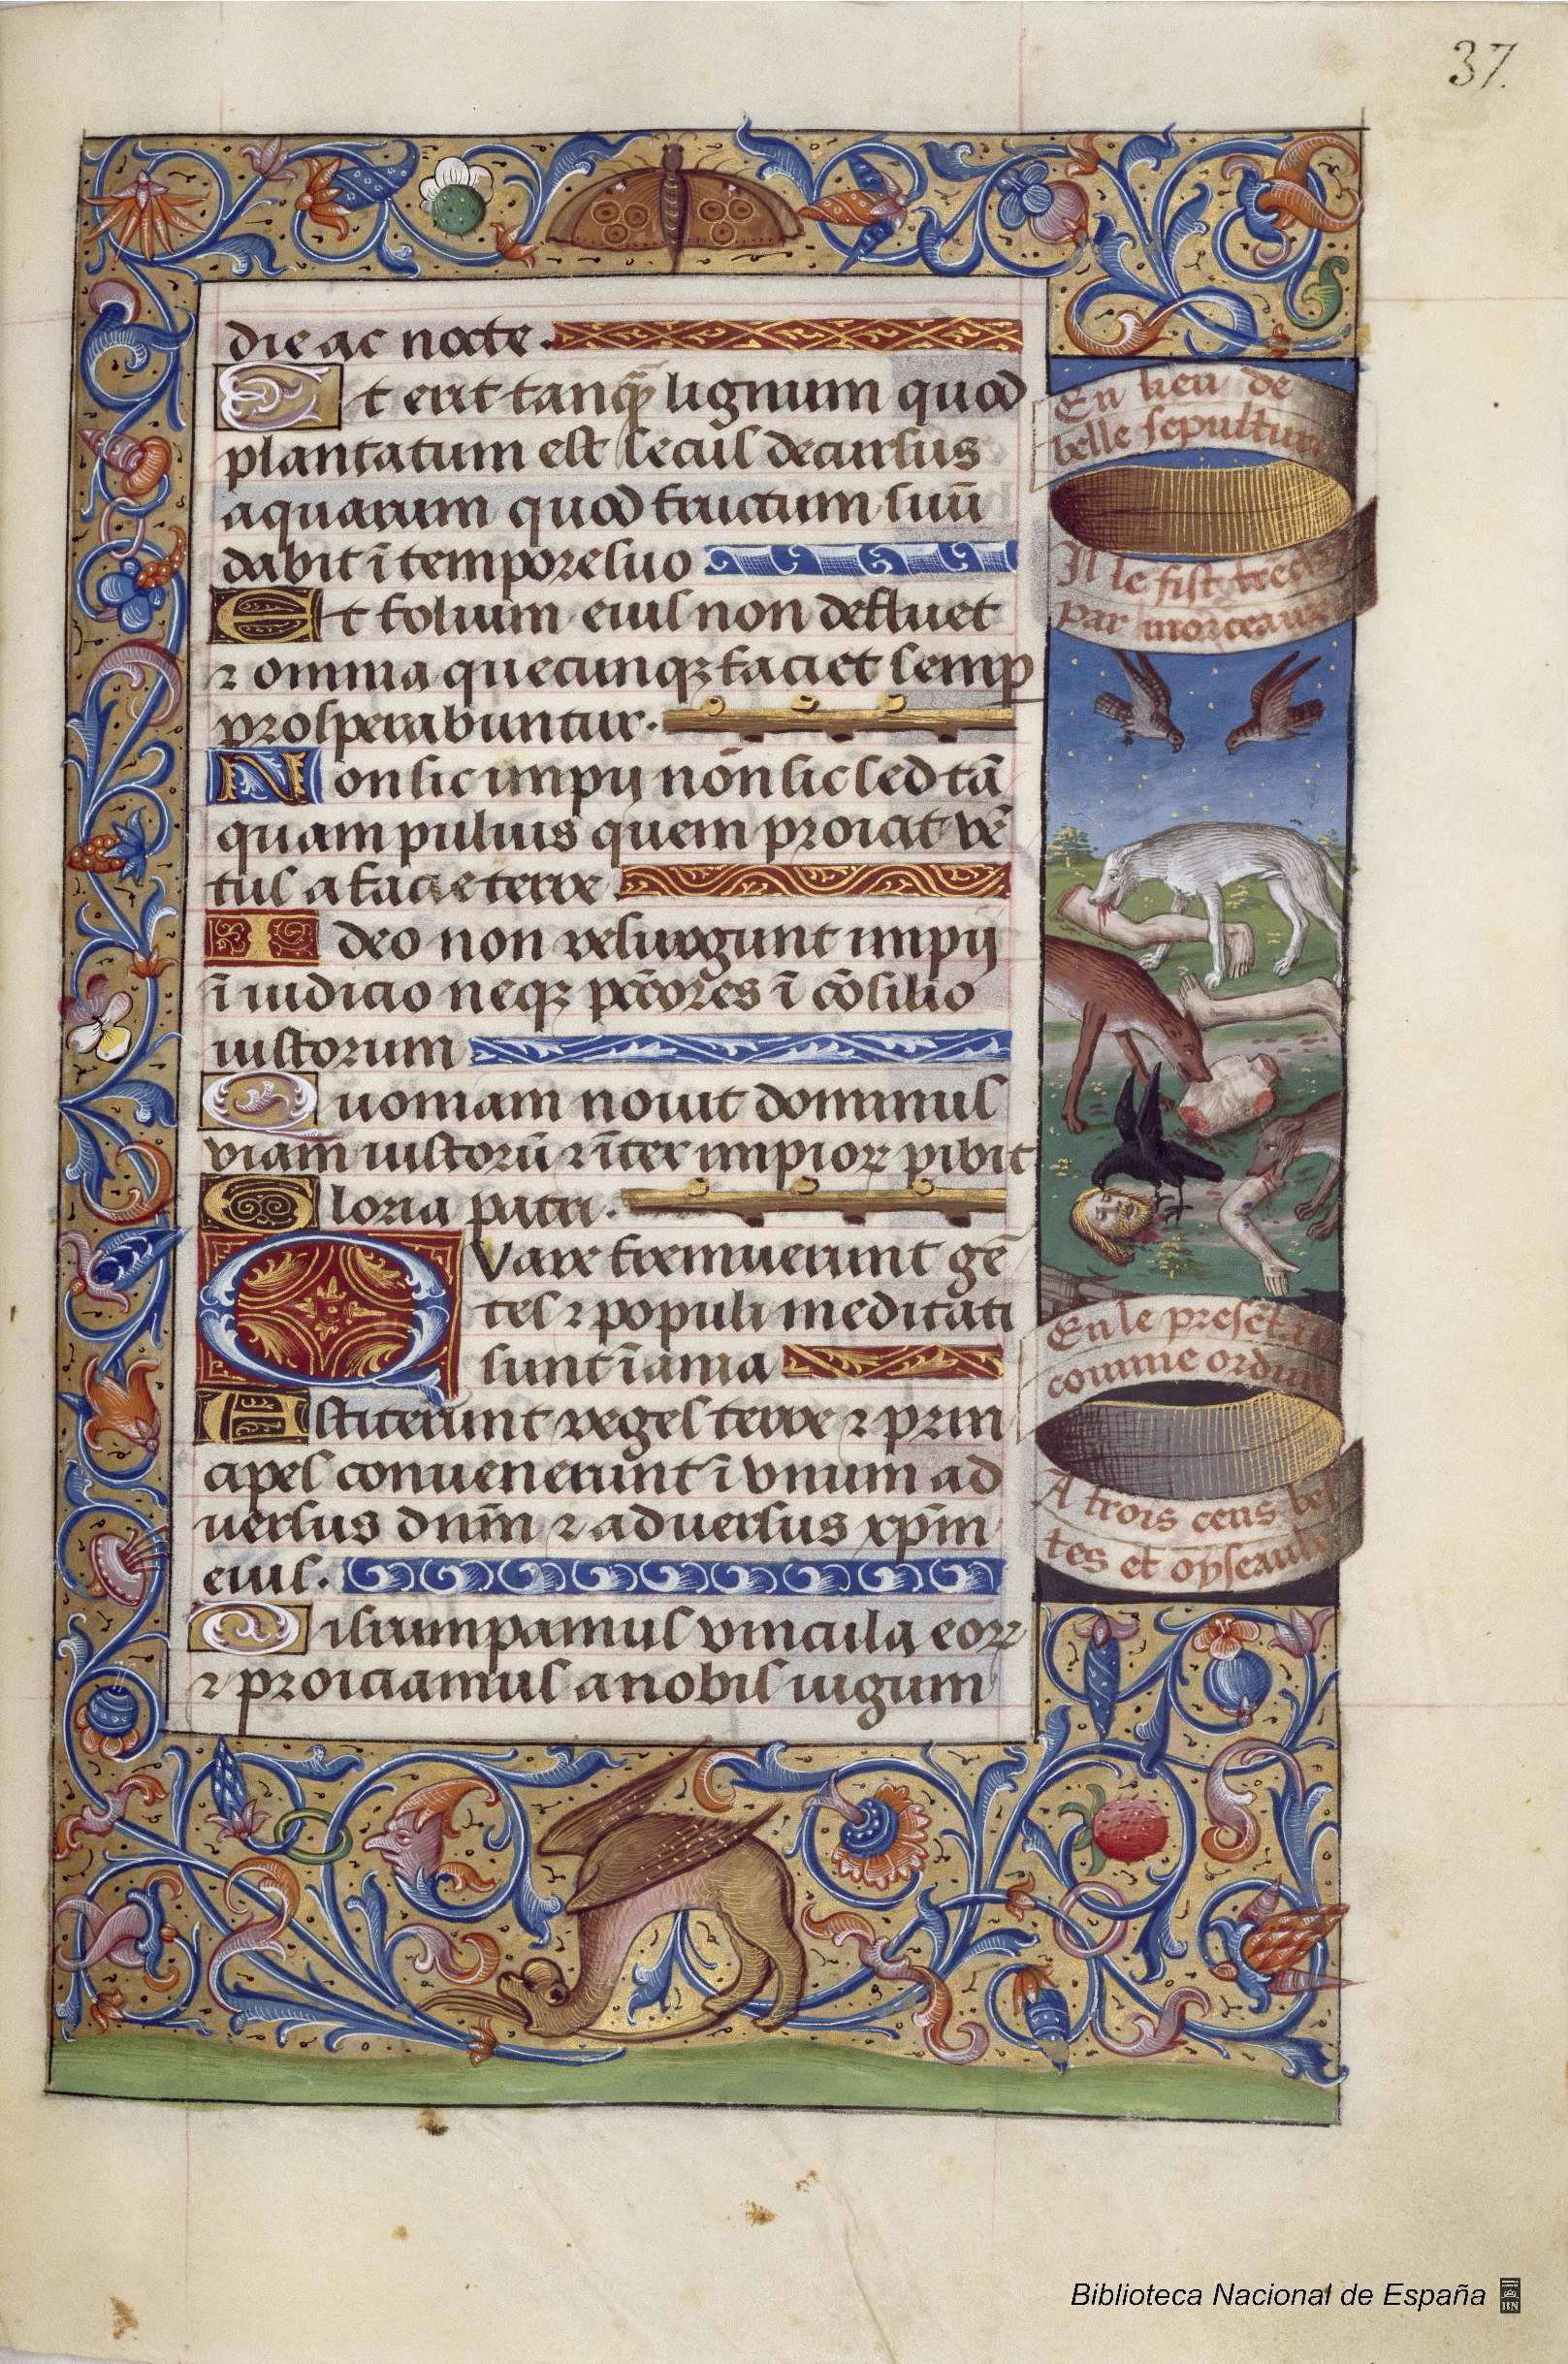 37.
die ac nocte.
Et erit tanq̃ lignum quod
plantatum est secus decursus
aquarum quod fructum suũ
dabit ĩ tempore suo
Et folium eius non defluet
⁊ omnia quecunqꝫ faciet semꝑ
prosperabuntur.
Non sic impij nõn sic sed tã
quam puluis quem proicit vẽ
tus a facie terre
Ideo non resurgunt impij
ĩ iudicio neqꝫ pctõres ĩ cõsilio
iustorum
Quoniam nouit dominus
viam iustorũ ⁊ ĩter impioꝝ ꝑibit
Gloria patri.
Quare fremuerunt gẽ
tes ⁊ populi meditati
sunt ĩania
Astiterunt reges terre ⁊ prin
cipes conuenerunt ĩ vnum ad
uersus dnm̃ ⁊ aduersus xp̃m
eius.
Disrumpamus vincula eoꝝ
⁊ proiciamus a nobis iugum
En lieu de
belle sepulture
Il le fist
par morceaux
En le
comme
A trois cens bes
tes et oyseaulx
Biblioteca Nacional de España
BN